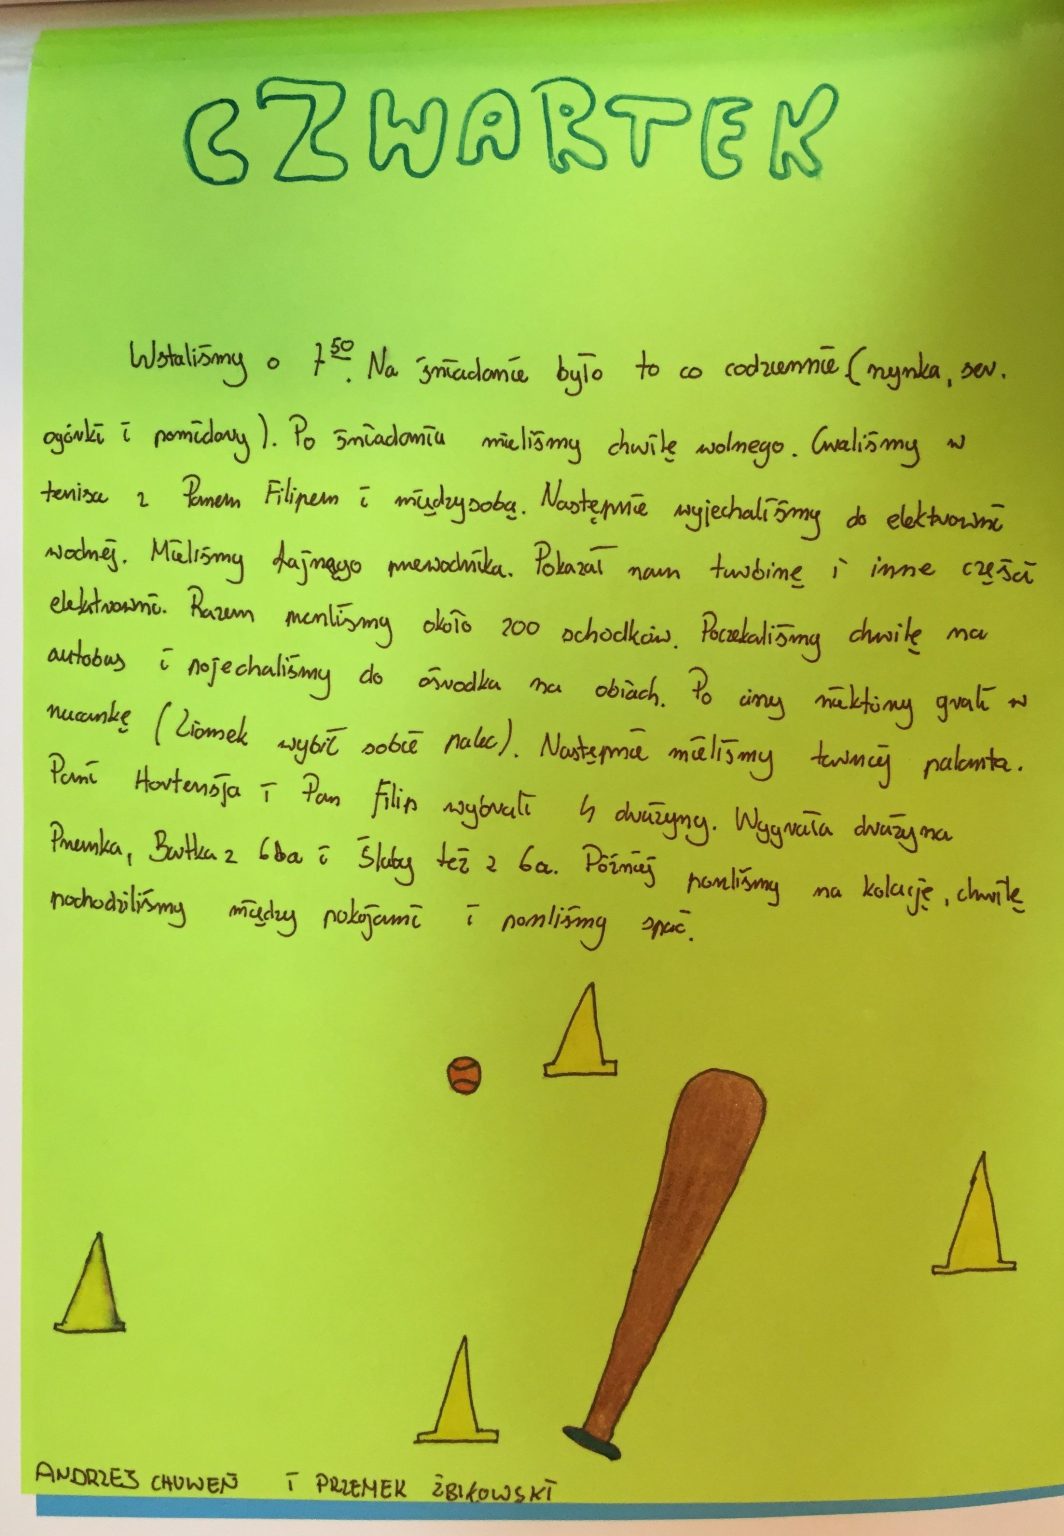 CZWARTEK
Wstaliśmy o 7⁵⁰. Na śniadanie było to co codziennie (szynka, ser,
ogórki i pomidory). Po śniadaniu mieliśmy chwilę wolnego. Graliśmy w
tenisa z Panem Filipem i między sobą. Następnie wyjechaliśmy do elektrowni
wodnej. Mieliśmy fajnego przewodnika. Pokazał nam turbinę i inne części
elektrowni. Razem przeszliśmy około 200 schodków. Poczekaliśmy chwilę na
autobus i pojechaliśmy do ośrodka na obiad. Po ciszy niektórzy grali w
ruczankę (Ziomek wybił sobie palec). Następnie mieliśmy turniej palanta.
Pani Hortensja i Pan Filip wybrali 4 drużyny. Wygrała drużyna
Przemka, Bartka z 6ba i Śluby też z 6a. Później poszliśmy na kolację, chwilę
pochodziliśmy między pokojami i poszliśmy spać.
ANDRZEJ CHUWEŃ I PRZEMEK ŻBIKOWSKI